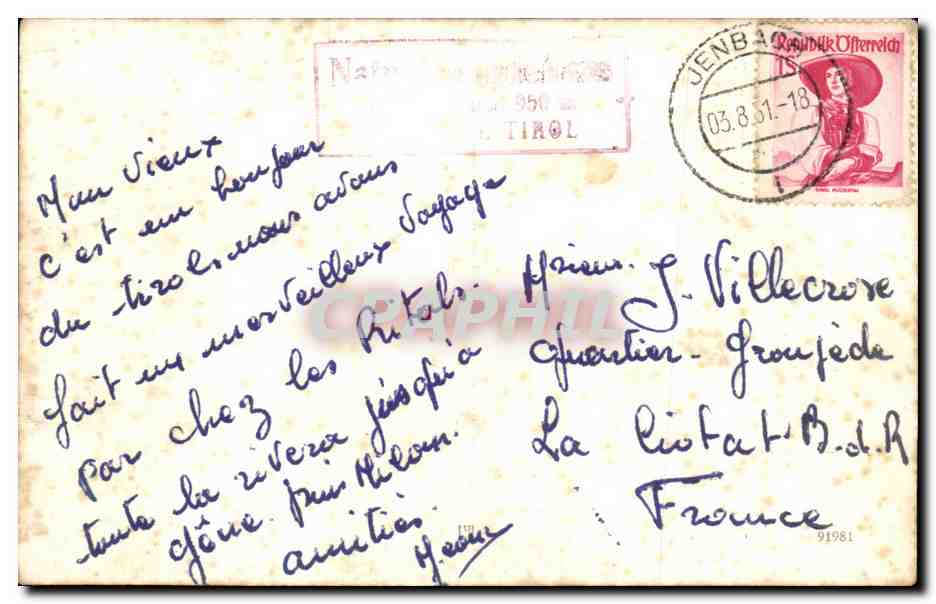 950 m
TIROL
JENBACH
03.8.51.-18
1
Republik Österreich
1S
Mon Vieux
c'est un bonjour
du tirol. nous avons
fait un merveilleux voyage
par chez les Ritals.
toute la rivera jusqu'à
gêne. puis Milan.
amitiés.
J. Villecroze
Quartier-
La Ciotat-B.d.R
France
91981
CPAPHIL